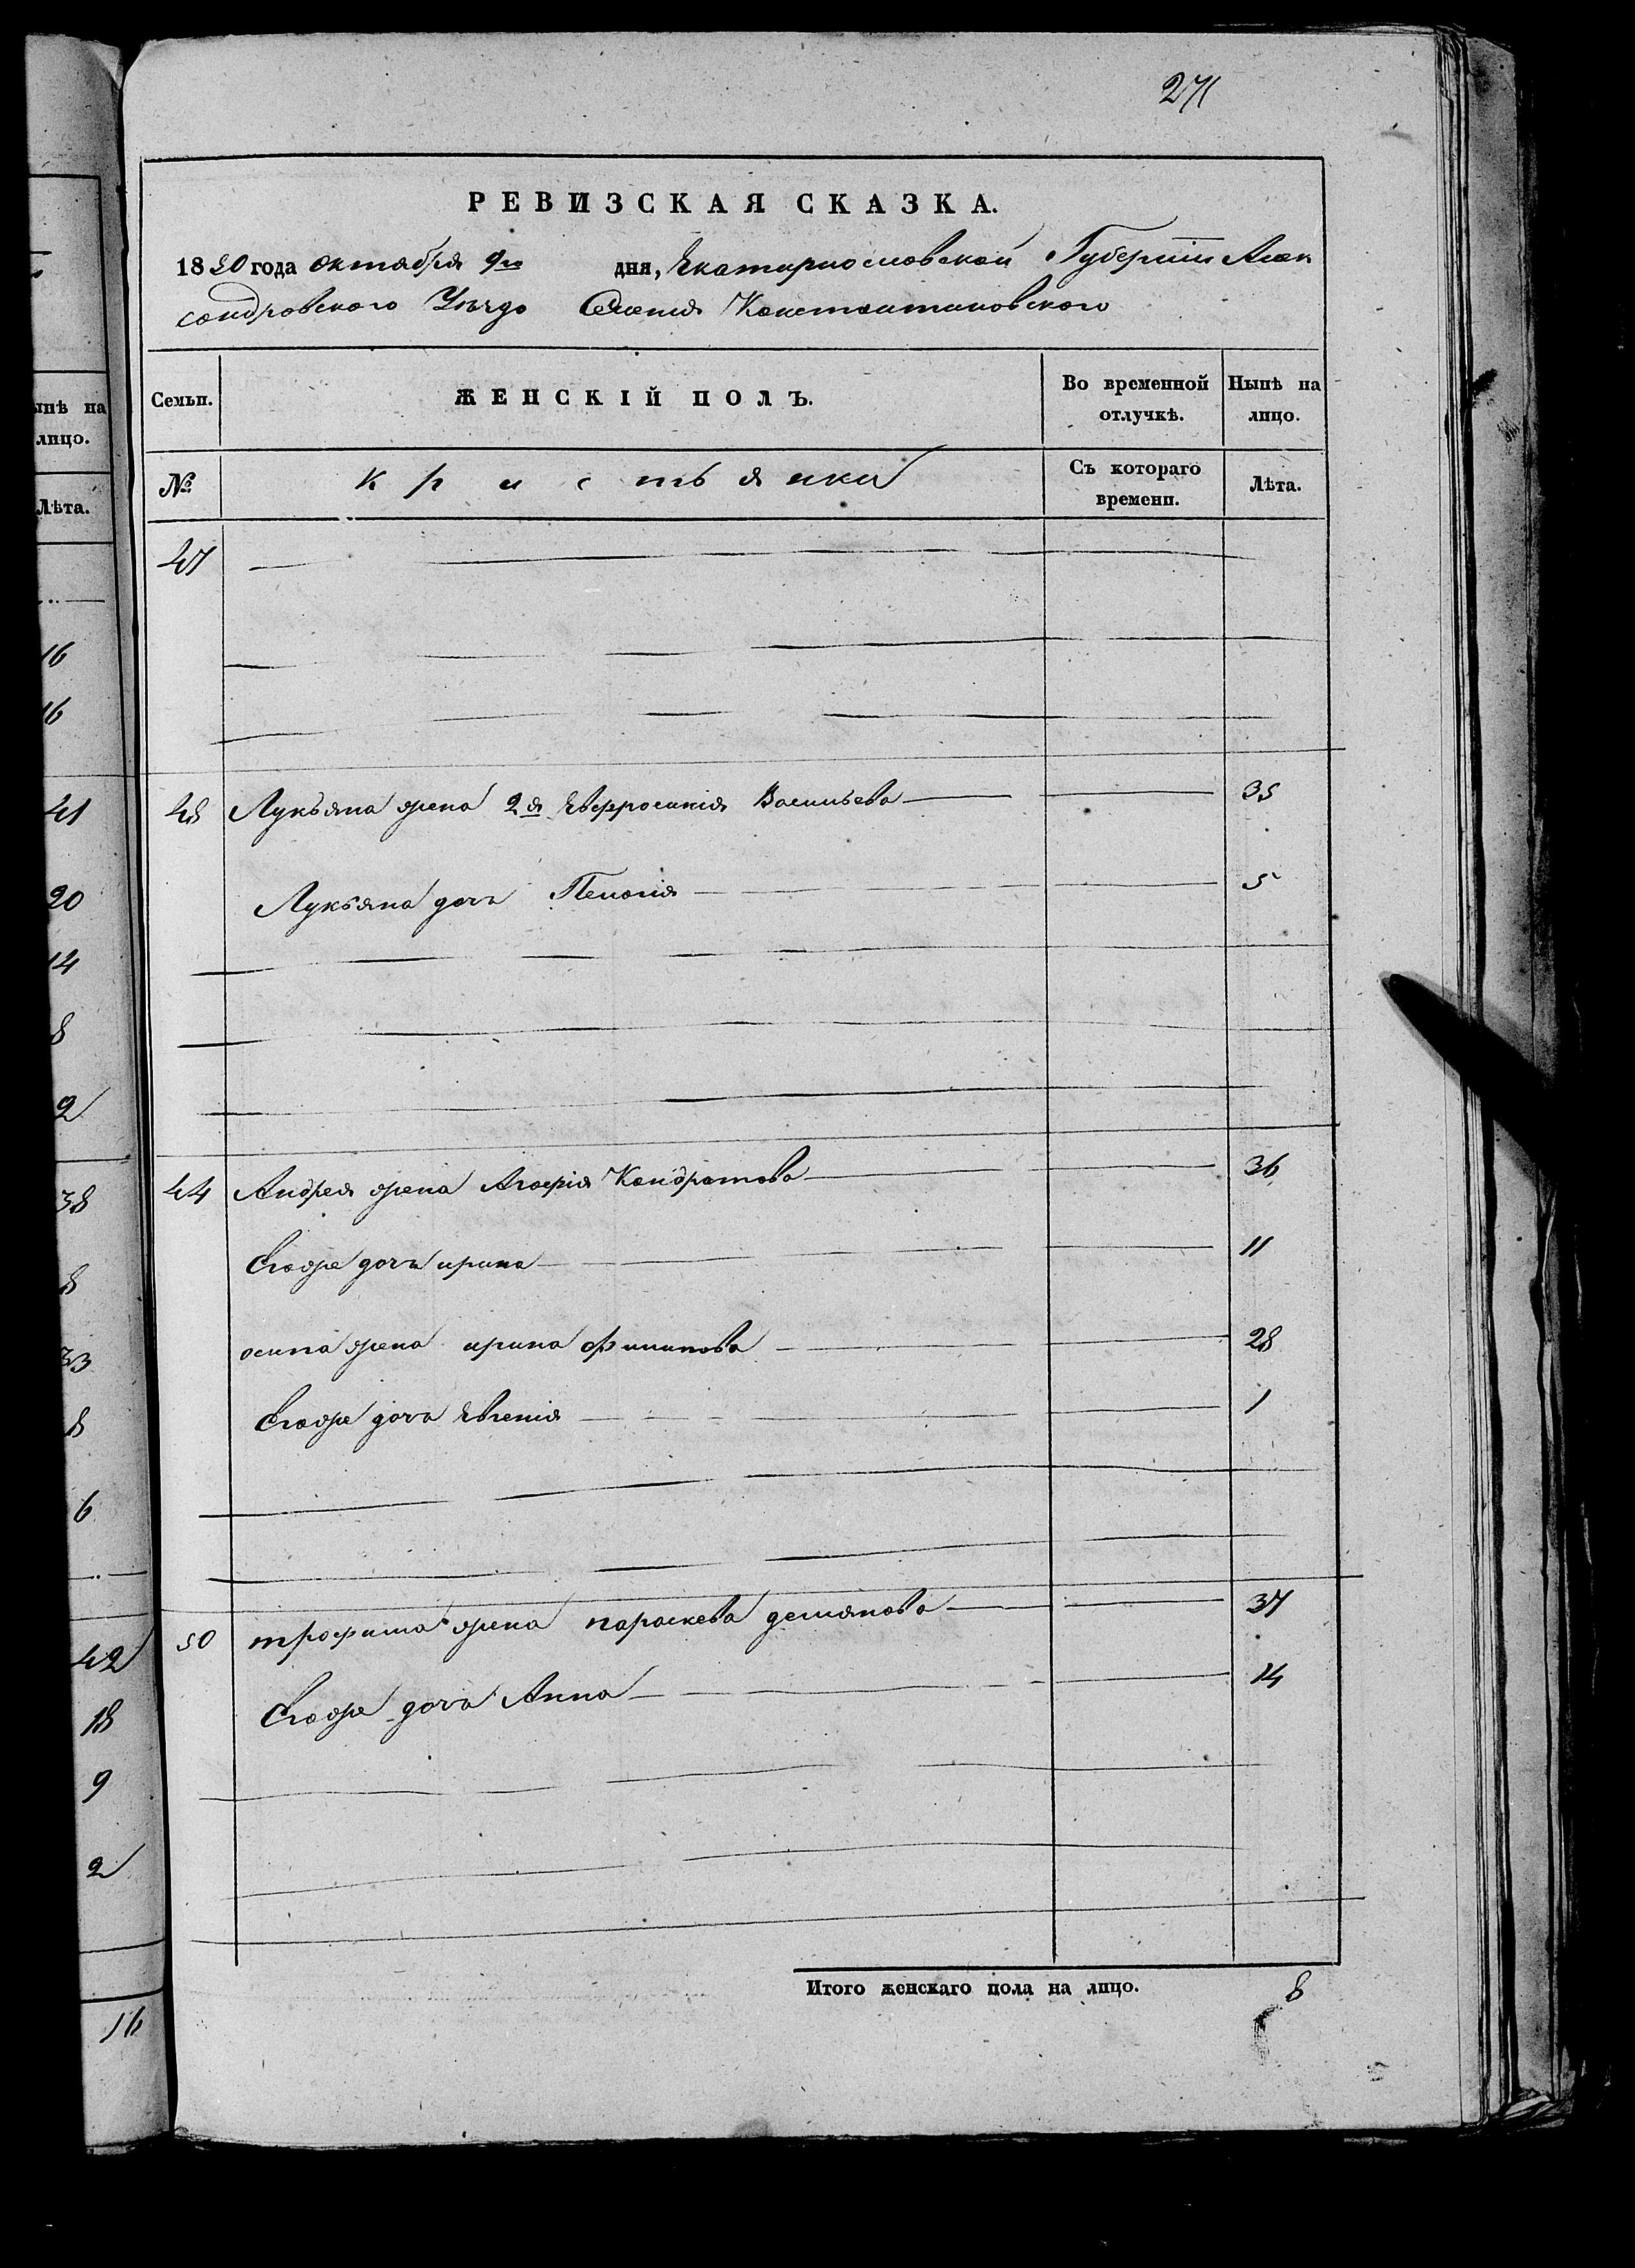 271
РЕВИЗСКАЯ СКАЗКА.
1850 года октября 9го дня, Екатеринославской Губернии Алек
сандровского Уезда Селения Константиновского
Семьи. ЖЕНСКІЙ ПОЛЪ. Во временной отлучкѣ. Нынѣ на лицо.
№ Кристьянки Съ котораго времени. Лѣта.
47
48 Лукьяна жена 2я Евфросинія Васильева 35
Лукьяна дочь Пелагія 5
44 Андрея жена Агафія Кондратова 36
Егоже дочь ирина 11
осипа жена ирина Филипова 28
Егоже дочь Евгенія 1
50 трофима жена параскева демянова 37
Егоже дочь Анна 14
Итого женскаго пола на лицо. 8
ынѣ на
лицо.
Лѣта.
16
16
41
20
14
8
2
38
8
33
8
6
42
18
9
2
16